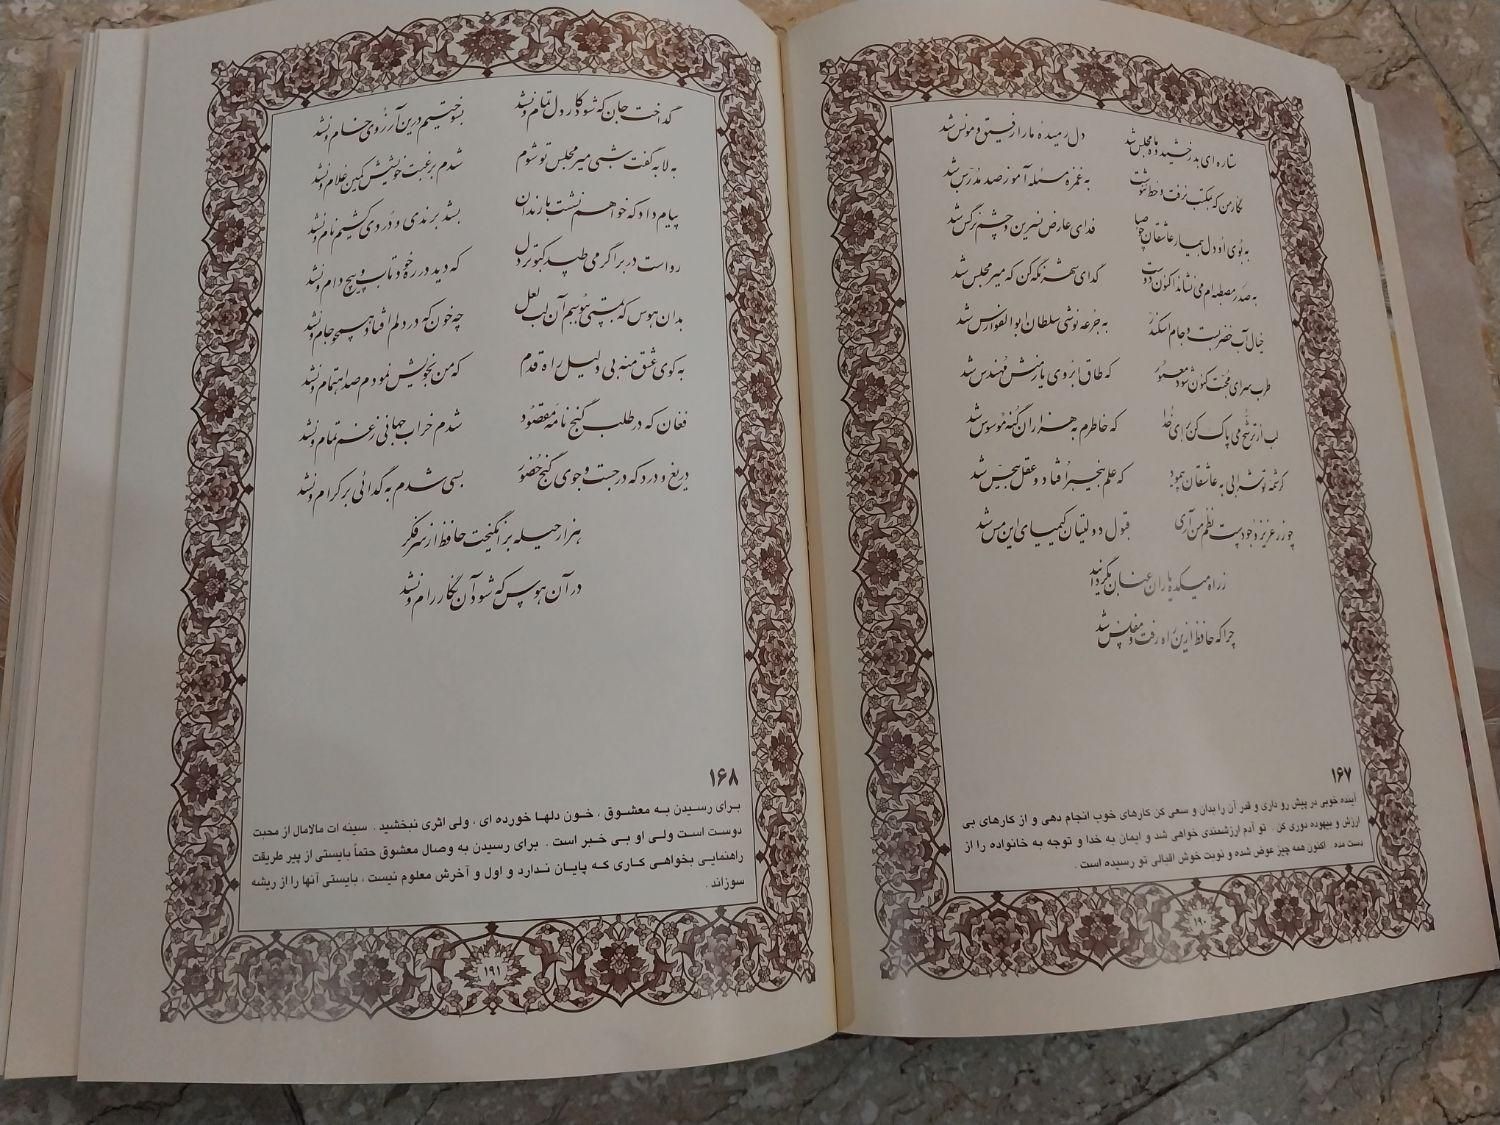 ستاره ای بدرخشید و ماه مجلس شد
دل رمیده ما را رفیق و مونس شد
نگار من که بمکتب نرفت و خط ننوشت
به غمزه مسئله آموز صد مدرس شد
به بوی او دل بیمار عاشقان چو صبا
فدای عارض نسرین و چشم نرگس شد
به صدر مصطبه ام می نشاند اکنون دوست
گدای شهر نگه کن که میر مجلس شد
خیال آب خضر بست و جام اسکندر
به جرعه نوشی سلطان ابوالفوارس شد
طرب سرای محبت کنون شود معمور
که طاق ابروی یار منش مهندس شد
لب از ترشح می پاک کن برای خدا
که خاطرم به هزاران گنه موسوس شد
کرشمه تو شرابی به عاشقان پیمود
که علم بیخبر افتاد و عقل بیحس شد
چو زر عزیز وجودیست نظم من آری
قبول دولتیان کیمیای این مس شد
ز راه میکده یاران عنان بگردانید
چرا که حافظ ازین راه رفت و مفلس شد
۱۶۷
آینده خوبی در پیش رو داری و قدر آن را بدان و سعی کن کارهای خوب انجام دهی و از کارهای بی
ارزش و بیهوده دوری کن . تو آدم ارزشمندی خواهی شد و ایمان به خدا و توجه به خانواده را از
دست مده . اکنون همه چیز عوض شده و نوبت خوش اقبالی تو رسیده است .
۱۹۰
گداخت جان که شود کار دل تمام و نشد
بسوختیم درین آرزوی خام و نشد
به لابه گفت شبی میر مجلس تو شوم
شدم برغبت خویشش کمین غلام و نشد
پیام داد که خواهم نشست با رندان
بشد برندی و دردی کشیم نام و نشد
رواست در بر اگر می طپد کبوتر دل
که دید در ره خود تاب و پیچ دام و نشد
بدان هوس که بمستی ببوسم آن لب لعل
چه خون که در دلم افتاد همچو جام و نشد
به کوی عشق منه بی دلیل راه قدم
که من بخویش نمودم صد اهتمام و نشد
فغان که در طلب گنج نامه مقصود
شدم خراب جهانی ز غم تمام و نشد
دریغ و درد که در جست و جوی گنج حضور
بسی شدم به گدائی بر کرام و نشد
هزار حیله برانگیخت حافظ از سر فکر
در آن هوس که شود آن نگار رام و نشد
۱۶۸
برای رسیدن به معشوق ، خون دلها خورده ای ، ولی اثری نبخشید . سینه ات مالامال از محبت
دوست است ولی او بی خبر است . برای رسیدن به وصال معشوق حتماً بایستی از پیر طریقت
راهنمایی بخواهی کاری که پایان ندارد و اول و آخرش معلوم نیست ، بایستی آنها را از ریشه
سوزاند .
۱۹۱